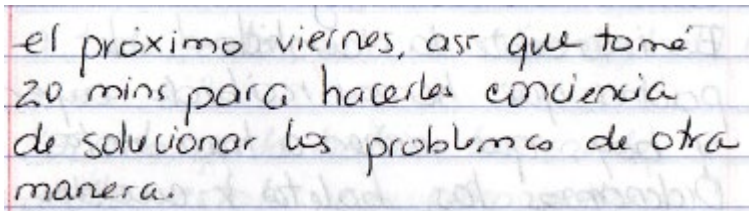 el próximo viernes, asr que tomé
20 mins para hacerles conciencia
de solucionar los problemas de otra
manera.